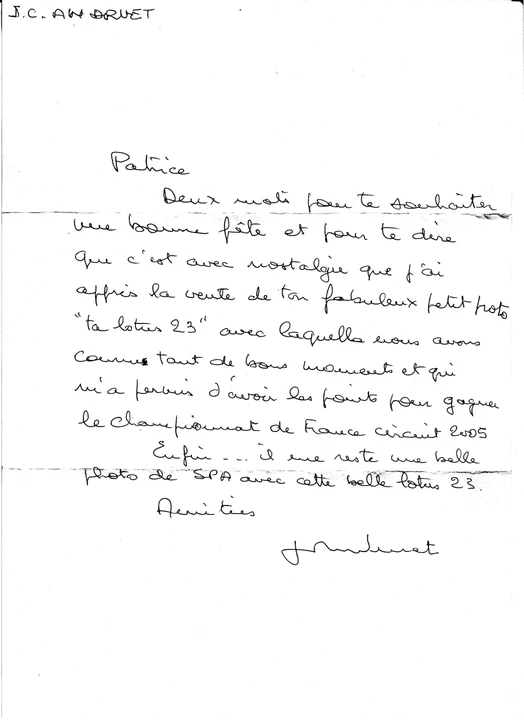 J.C. ANDRUET
Patrice
Deux mots pour te souhaiter
une bonne fête et pour te dire
que c'est avec nostalgie que j'ai
appris la vente de ton fabuleux petit proto
"ta lotus 23" avec laquelle nous avons
connus tant de bons moments et qui
m'a permis d'avoir les points pour gagner
le championnat de France circuit 2005
Enfin --- il me reste une belle
photo de SPA avec cette belle lotus 23.
Amitiés